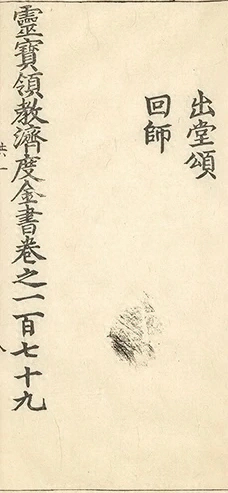 出堂頌
回師
靈寶領教濟度金書卷之一百七十九